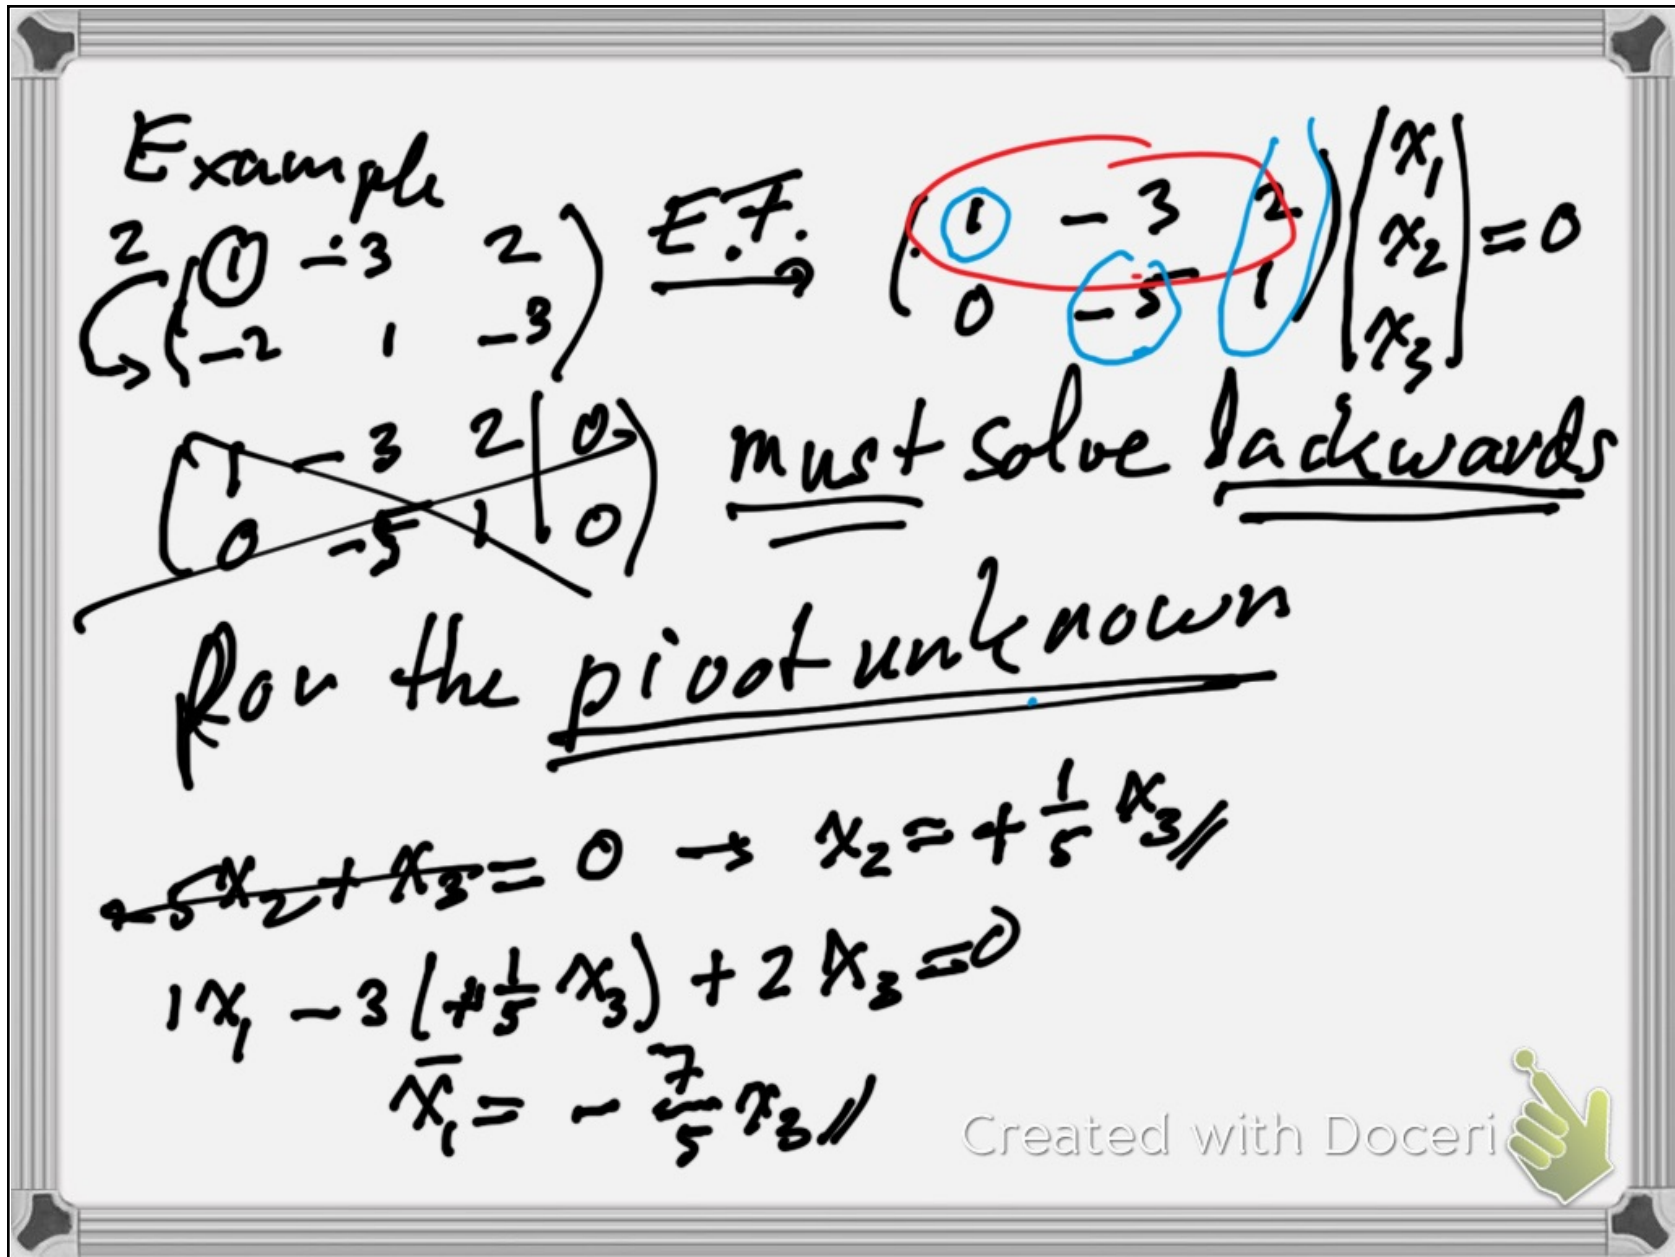 Example
2
(1 -3 2) E.F. (1 -3 2) (x₁)
(-2 1 -3) → (0 -5 1) (x₂) = 0
(x₃)
(1 -3 2 | 0) must solve backwards
(0 -5 1 | 0)
for the pivot unknown
-5x₂ + x₃ = 0 → x₂ = + 1/5 x₃ //
1x₁ - 3(+1/5 x₃) + 2x₃ = 0
x₁ = - 7/5 x₃ //
Created with Doceri